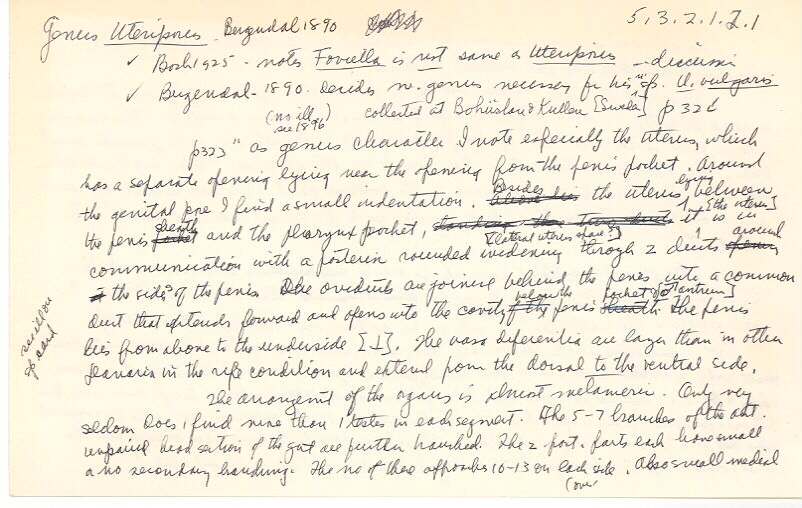 Genus Uteriporus Bergendal 1890 5.3.2.1.2.1
✓ Bock 1925 - notes Foviella is not same as Uteriporus - discussion
✓ Bergendal - 1890. decides n. genus necessary for his "sp. U. vulgaris
(no ill. see 1896) collected at Bohuslan & Kullen [Sweden] p 322
p323 "as genus character I note especially the uterus, which
has a separate opening lying near the opening from the penis pocket. Around
the genital pore I find a small indentation. Besides the uterus lying between
the penis sheath and the pharynx pocket, it [the uterus] is in
communication with a posterior rounded widening [lateral uterus spare?] through 2 ducts around
the sides of the penis. The oviducts are joined behind the penis into a common
duct that extends forward and opens into the cavity below the penis pocket [of antrum] The penis
lies from above to the underside [⊥]. The vasa deferentia are larger than in other
planaria in the ripe condition and extend from the dorsal to the ventral side.
The arrangement of the organs is almost metameric. Only very
seldom does I find more than 1 testes in each segment. The 5-7 branches of the ant.
unpaired head section of the gut are further branched. The 2 post. parts each have small
a no secondary branching. The no of these approaches 10-13 on each side. Also small medial
(over
see ill on
of card